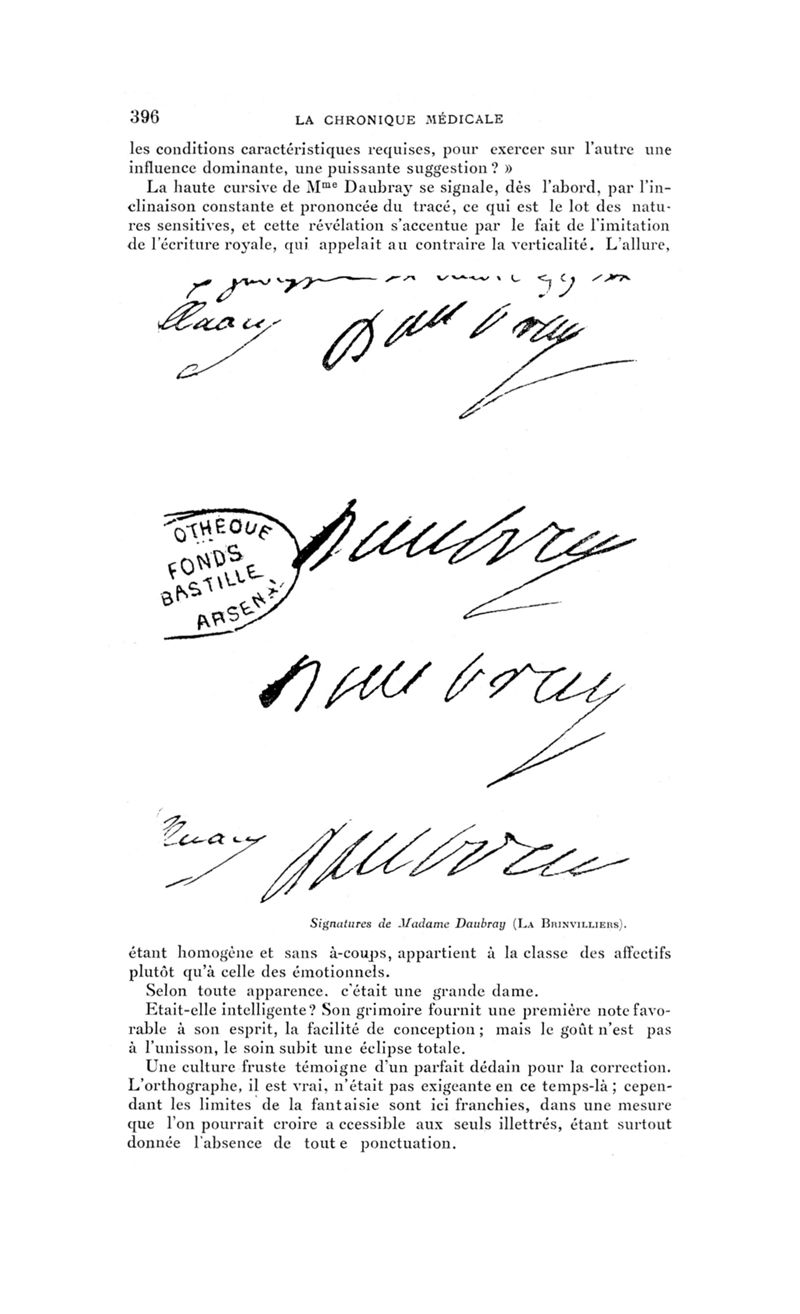 396
LA CHRONIQUE MÉDICALE
les conditions caractéristiques requises, pour exercer sur l'autre une
influence dominante, une puissante suggestion ? »
La haute cursive de Mme Daubray se signale, dès l'abord, par l'in-
clinaison constante et prononcée du tracé, ce qui est le lot des natu-
res sensitives, et cette révélation s'accentue par le fait de l'imitation
de l'écriture royale, qui appelait au contraire la verticalité. L'allure,
Daubray
OTHEQUE
FONDS
BASTILLE
ARSENA
Daubray
Daubray
Daubray
Signatures de Madame Daubray (LA BRINVILLIERS).
étant homogène et sans à-coups, appartient à la classe des affectifs
plutôt qu'à celle des émotionnels.
Selon toute apparence. c'était une grande dame.
Etait-elle intelligente? Son grimoire fournit une première note favo-
rable à son esprit, la facilité de conception ; mais le goût n'est pas
à l'unisson, le soin subit une éclipse totale.
Une culture fruste témoigne d'un parfait dédain pour la correction.
L'orthographe, il est vrai, n'était pas exigeante en ce temps-là ; cepen-
dant les limites de la fantaisie sont ici franchies, dans une mesure
que l'on pourrait croire a ccessible aux seuls illettrés, étant surtout
donnée l'absence de tout e ponctuation.